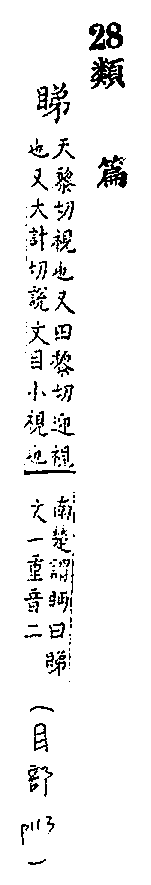 28類篇
睇
天黎切視也又田黎切迎視
也又大計切說文目小視也
南楚謂眄曰睇
文一重音二
(目部 p113)